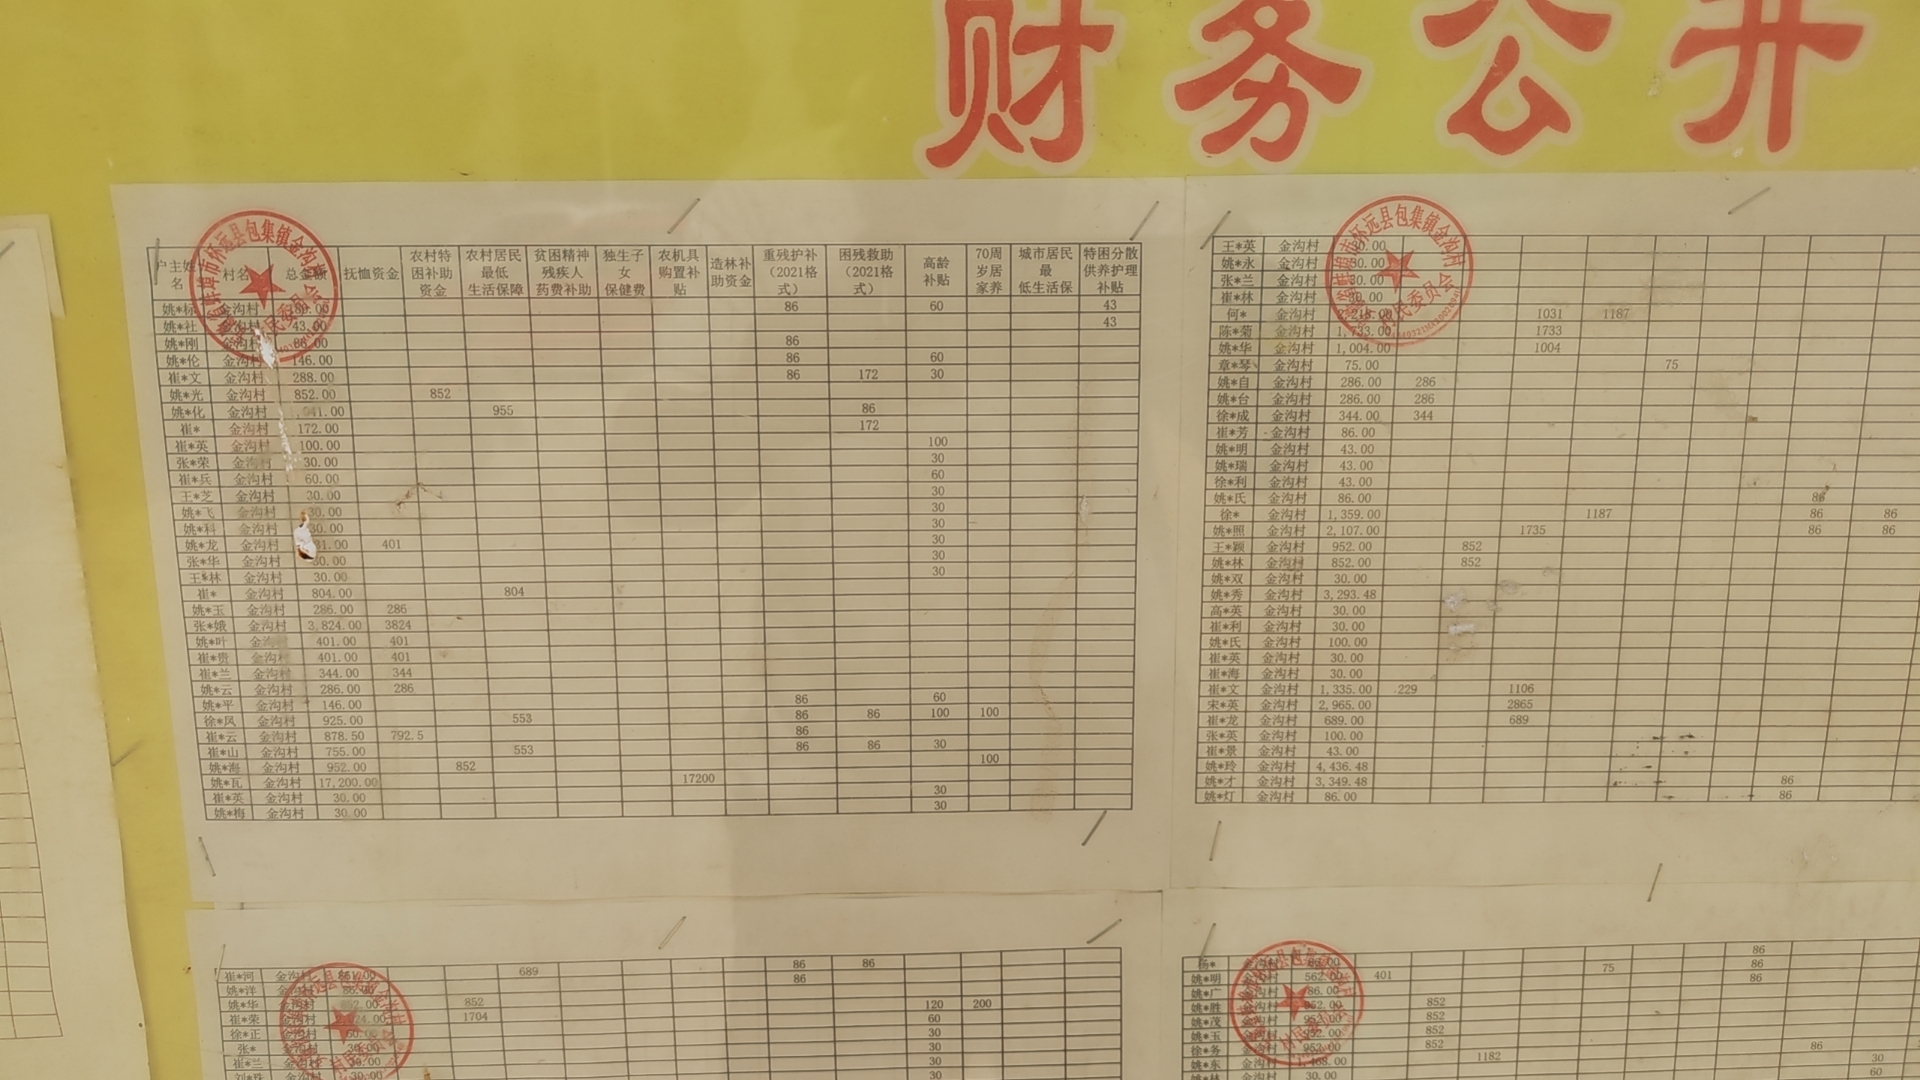 财务公开
户主姓名 村名 总金额 抚恤资金 农村特困补助资金 农村居民最低生活保障 贫困精神残疾人药费补助 独生子女保健费 农机具购置补贴 造林补助资金 重残护补（2021格式） 困残救助（2021格式） 高龄补贴 70周岁居家养 城市居民最低生活保 特困分散供养护理补贴
姚*标 金沟村 86 60 43
姚*社 金沟村 43.00 43
姚*刚 金沟村 86.00 86
姚*伦 金沟村 146.00 86 60
崔*文 金沟村 288.00 86 172 30
姚*光 金沟村 852.00 852
姚*化 金沟村 955 86
崔* 金沟村 172.00 172
崔*英 金沟村 100.00 100
张*荣 金沟村 30.00 30
崔*兵 金沟村 60.00 60
王*芝 金沟村 30.00 30
姚*飞 金沟村 30.00 30
姚*科 金沟村 30.00 30
姚*龙 金沟村 401 30
张*华 金沟村 30.00 30
王*林 金沟村 30.00 30
崔* 金沟村 804.00 804
姚*玉 金沟村 286.00 286
张*娥 金沟村 3,824.00 3824
姚*叶 金沟村 401.00 401
崔*贵 金沟村 401.00 401
崔*兰 金沟村 344.00 344
姚*云 金沟村 286.00 286
姚*平 金沟村 146.00 86 60
徐*凤 金沟村 925.00 553 86 86 100 100
崔*云 金沟村 878.50 792.5 86
崔*山 金沟村 755.00 553 86 86 30
姚*海 金沟村 952.00 852 100
姚*瓦 金沟村 17,200.00 17200
崔*英 金沟村 30.00 30
姚*梅 金沟村 30.00 30
蚌埠市怀远县包集镇金沟村村民委员会
王*英 金沟村 30.00
姚*永 金沟村 30.00
张*兰 金沟村 30.00
崔*林 金沟村 30.00
何* 金沟村 2,218.00 1031 1187
陈*菊 金沟村 1,733.00 1733
姚*华 金沟村 1,004.00 1004
章*琴 金沟村 75.00 75
姚*自 金沟村 286.00 286
姚*台 金沟村 286.00 286
徐*成 金沟村 344.00 344
崔*芳 金沟村 86.00
姚*明 金沟村 43.00
姚*瑞 金沟村 43.00
徐*利 金沟村 43.00
姚*氏 金沟村 86.00 86
徐* 金沟村 1,359.00 1187 86 86
姚*照 金沟村 2,107.00 1735 86 86
王*颖 金沟村 952.00 852
姚*林 金沟村 852.00 852
姚*双 金沟村 30.00
姚*秀 金沟村 3,293.48
高*英 金沟村 30.00
崔*利 金沟村 30.00
姚*氏 金沟村 100.00
崔*英 金沟村 30.00
崔*海 金沟村 30.00
崔*文 金沟村 1,335.00 229 1106
宋*英 金沟村 2,965.00 2865
崔*龙 金沟村 689.00 689
张*英 金沟村 100.00
崔*景 金沟村 43.00
姚*玲 金沟村 4,436.48
姚*才 金沟村 3,349.48 86
姚*灯 金沟村 86.00 86
蚌埠市怀远县包集镇金沟村村民委员会
崔*河 金沟村 689 86 86
姚*洋 金沟村 86
姚*华 金沟村 852 120 200
崔*荣 金沟村 1704 60
徐*正 金沟村 30
张* 金沟村 30
崔*兰 金沟村 30
30
杨* 金沟村 86
姚*明 金沟村 562.00 401 75 86
姚*广 金沟村 86.00 86
姚*胜 金沟村 852
姚*茂 金沟村 852
姚*玉 金沟村 852
徐*务 金沟村 852
姚*东 金沟村 1182 86
金沟村 30.00 30
60